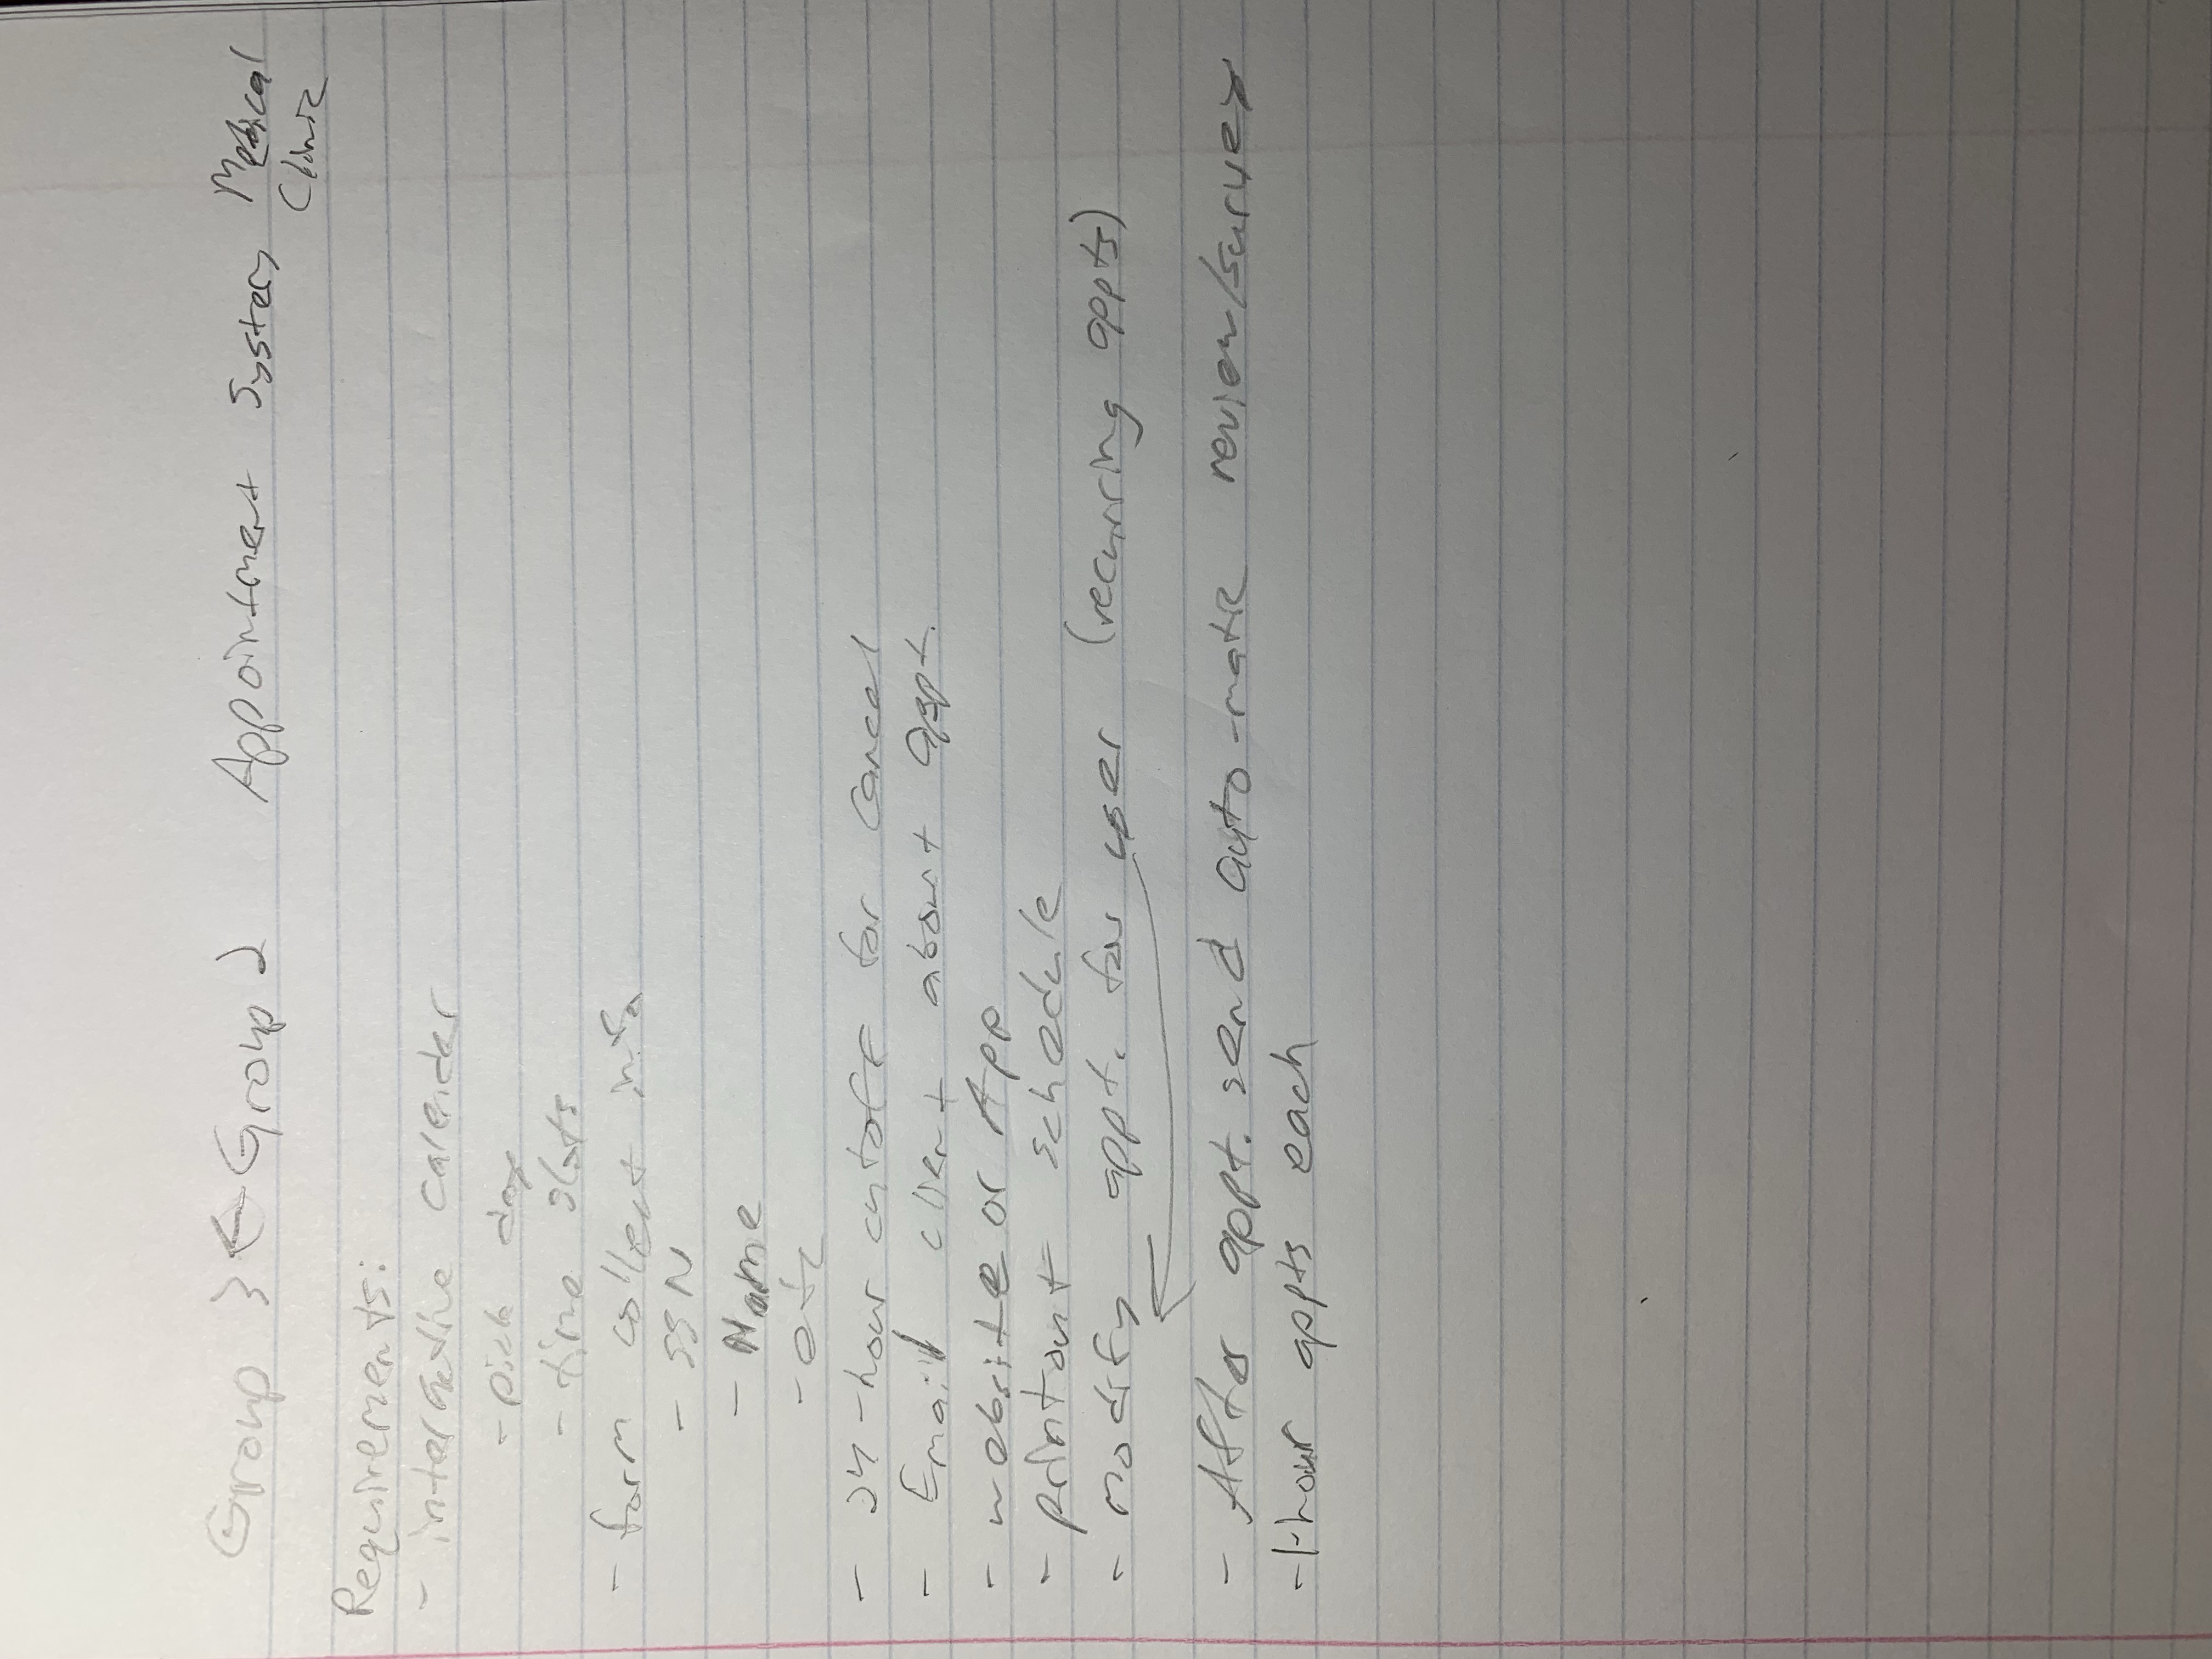 Group 3 ← Group 2 Appointment System Medical
Clinic
Requirements:
- interactive calender
- pick day
- time slots
- form collect info
- SSN
- Name
- etc
- 24-hour cutoff for cancel
- Email client about appt.
- website or App
- printout schedule
- modify appt. for user (recurring appts)
- After appt. send auto-matic review/survey
- 1-hour appts each